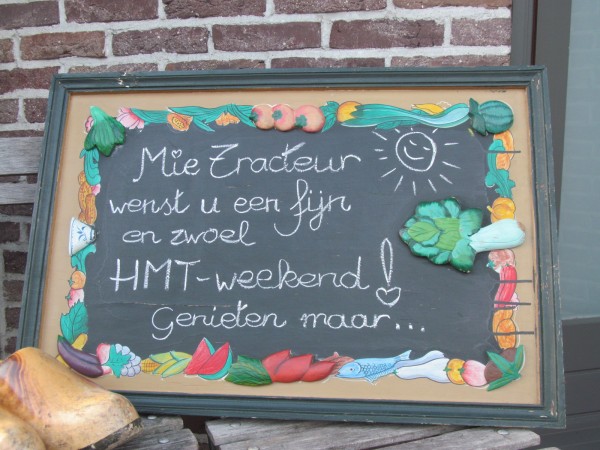 Mie Tracteur
wenst u een fijn
en zwoel
HMT-weekend!
Genieten maar...